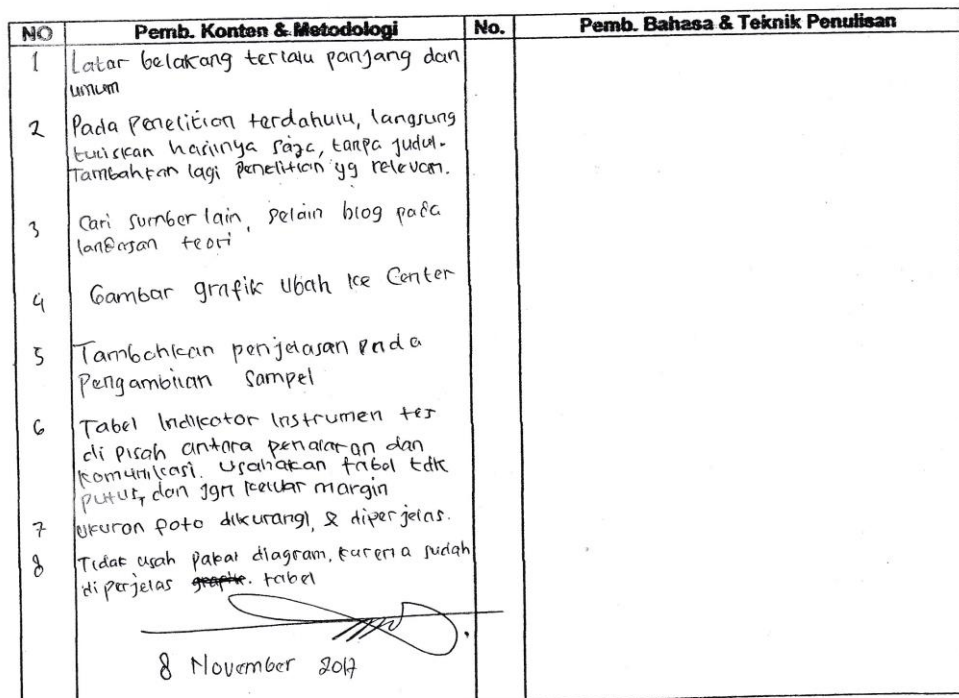 NO Pemb. Konten & Metodologi No. Pemb. Bahasa & Teknik Penulisan
1 Latar belakang terlalu panjang dan
umum
2 Pada Penelitian terdahulu, langsung
tuliskan hasilnya saja, tanpa judul.
Tambahkan lagi penelitian yg relevan.
3 Cari sumber lain, selain blog pada
landasan teori
4 Gambar grafik ubah ke Center
5 Tambahkan penjelasan pada
Pengambilan Sampel
6 Tabel Indikator Instrumen tes
di pisah antara penalaran dan
komunikasi. Usahakan tabel tdk
putus, dan jgn keluar margin
7 Ukuran foto dikurangi, & diperjelas.
8 Tidak usah pakai diagram, karena sudah
di perjelas grafik. tabel
8 November 2017